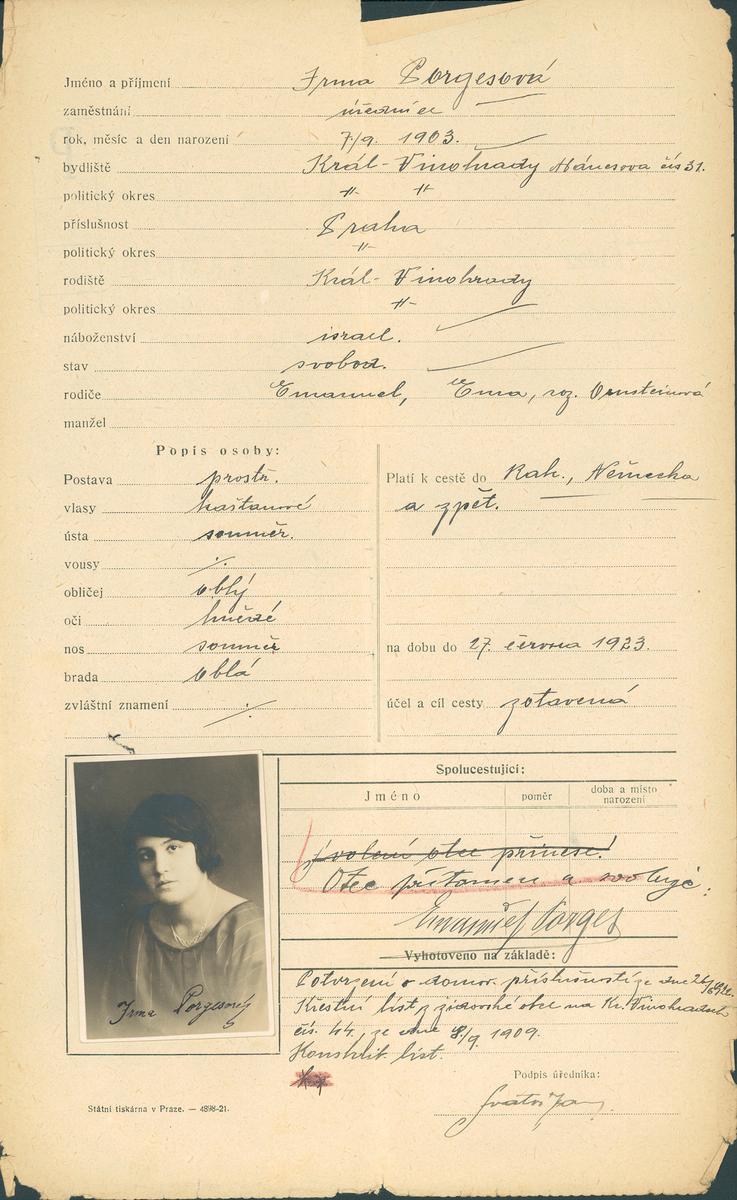 Jméno a příjmení Irma Porgesová
zaměstnání úřednice
rok, měsíc a den narození 7/9. 1903.
bydliště Král- Vinohrady Mánesova čís 31.
politický okres -〃- -〃-
příslušnost Praha
politický okres -〃-
rodiště Král- Vinohrady
politický okres -〃-
náboženství israel.
stav svobod.
rodiče Emanuel, Ema, roz. Ornsteinová
manžel
Popis osoby:
Postava prostř.
vlasy kaštanové
ústa souměr.
vousy ./.
obličej oblý
oči hnědé
nos souměr
brada oblá
zvláštní znamení ./.
Platí k cestě do Rak., Německa
a zpět.
na dobu do 27. června 1923.
účel a cíl cesty zotavená
Spolucestující:
Jméno poměr doba a místo narození
svolení otce přinese!
Otec přítomen a svoluje.
Emanuel Porges
Vyhotoveno na základě:
Potvrzení o domov. příslušnosti ze dne
Křestní list z židovské obce na Kr. Vinohradech
čís. 44, ze dne 8/9. 1909.
list.
Podpis úředníka:
Irma Porgesová
Státní tiskárna v Praze. — 4898-21.